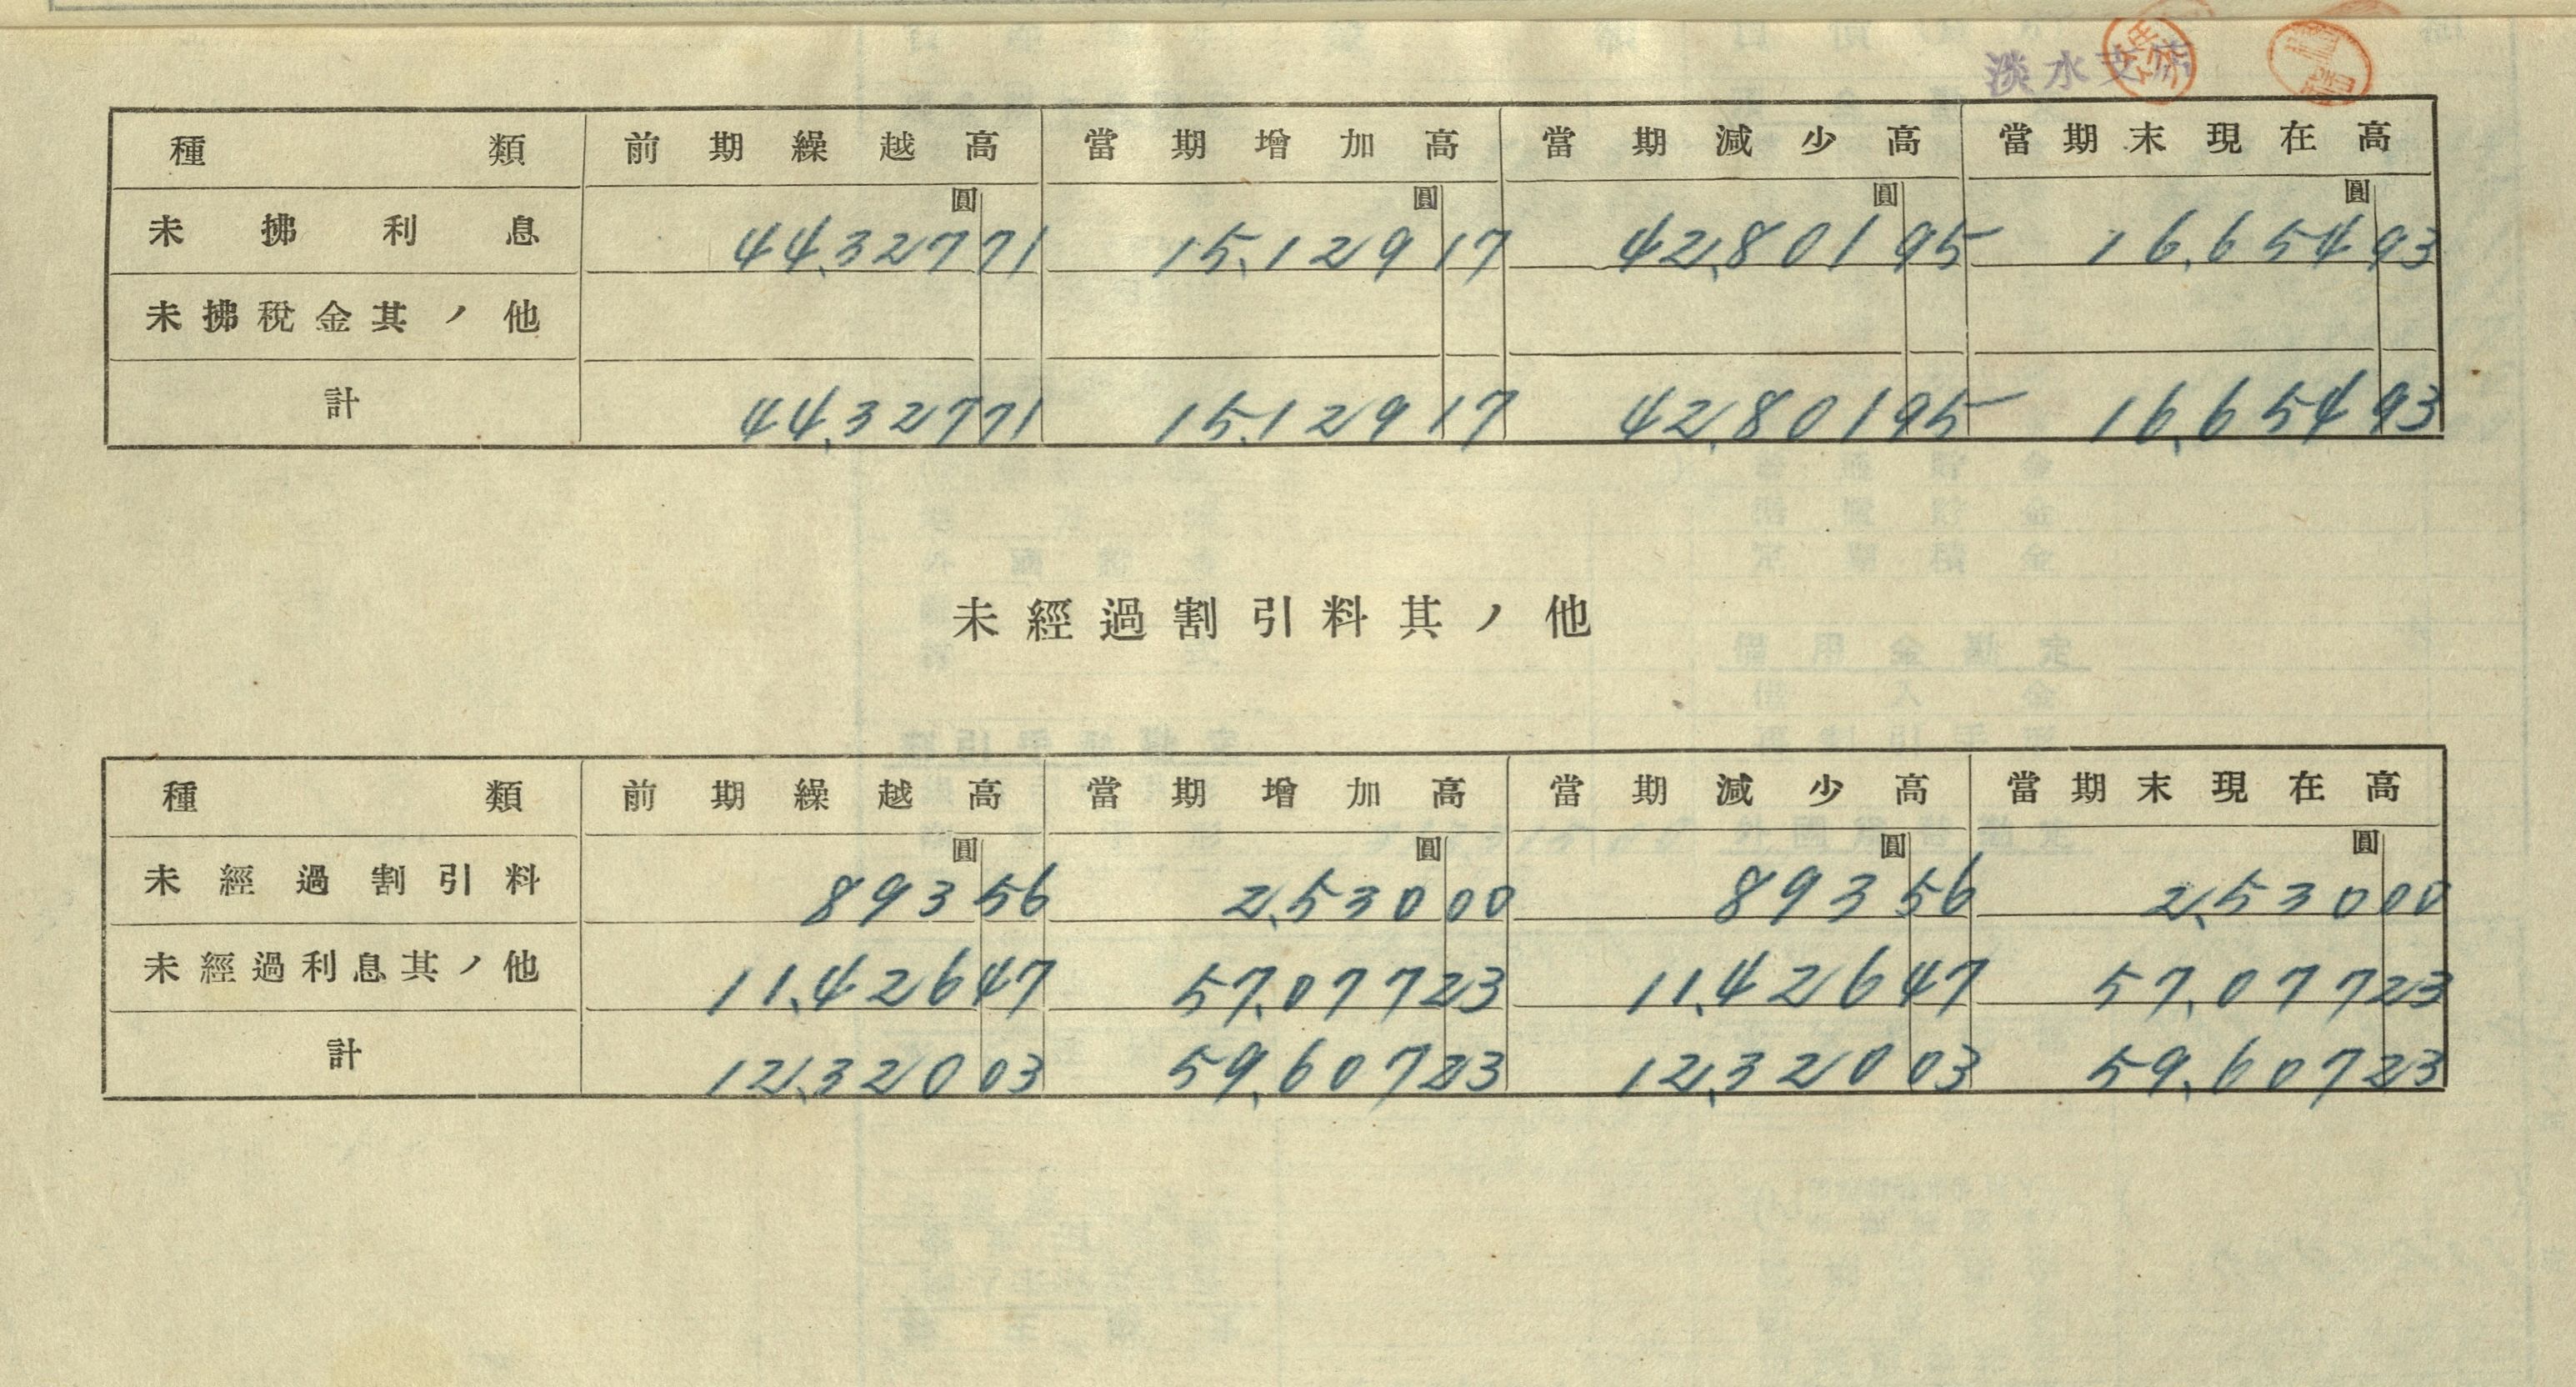 淡水支店
種類 前期繰越高 當期增加高 當期減少高 當期末現在高
圓 圓 圓 圓
未拂利息 44,327 71 15,129 17 42,801 95 16,654 93
未拂稅金其ノ他
計 44,327 71 15,129 17 42,801 95 16,654 93
未經過割引料其ノ他
種類 前期繰越高 當期增加高 當期減少高 當期末現在高
圓 圓 圓 圓
未經過割引料 893 56 2,530 00 893 56 2,530 00
未經過利息其ノ他 11,426 47 57,077 23 11,426 47 57,077 23
計 12,320 03 59,607 23 12,320 03 59,607 23